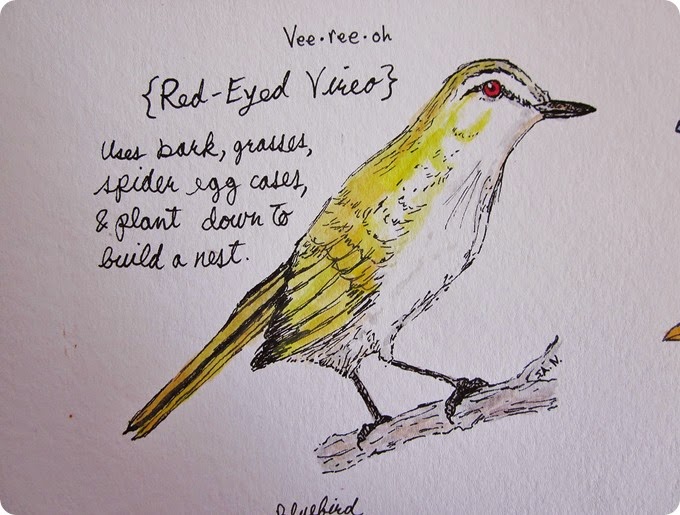 Vee·ree·oh
{Red-Eyed Vireo}
Uses bark, grasses,
spider egg cases,
& plant down to
build a nest.
J.A.N.
Bluebird